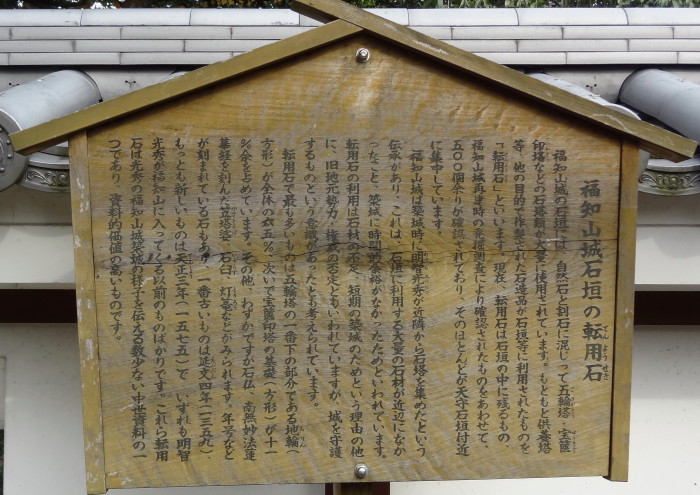 福知山城石垣の転用石
てんようせき
福知山城の石垣には、自然石と割石に混じって五輪塔・宝篋
印塔などの石塔類が大量に使用されています。もともと供養塔
等、他の目的で作製された石造品が石垣等に利用されたものを
「転用石」といいます。現在、転用石は石垣の中に残るもの、
福知山城再建時の発掘調査により確認されたものをあわせて、
五〇〇個余りが確認されており、そのほとんどが天守石垣付近
に集中しています。
福知山城は築城時、明智光秀が近隣から石塔を集めたという
伝承があり、これは、石垣に利用する大量の石材が近辺になか
ったこと、築城に時間的余裕がなかったためといわれています。
転用石の利用は石材の不足、短期の築城のためという理由の他
に、旧地元勢力、権威の否定ともいわれていますが、城を守護
するものという意識があったとも考えられています。
転用石で最も多いものは五輪塔の一番下の部分である地輪(
方形)が全体の六五%、次いで宝篋印塔の基礎(方形)が十一
%余を占めています。その他、わずかですが石仏、南無妙法蓮
華経を刻んだ笠塔婆、石臼、灯篭などがみられます。年号など
が刻まれている石もあり、一番古いものは延文四年(一三五九)
もっとも新しいものは天正三年(一五七五)で、いずれも明智
光秀が福知山に入ってくる以前のものばかりです。これら転用
石は光秀の福知山城築城の様子を伝える数少ない中世資料の一
つであり、資料的価値の高いものです。